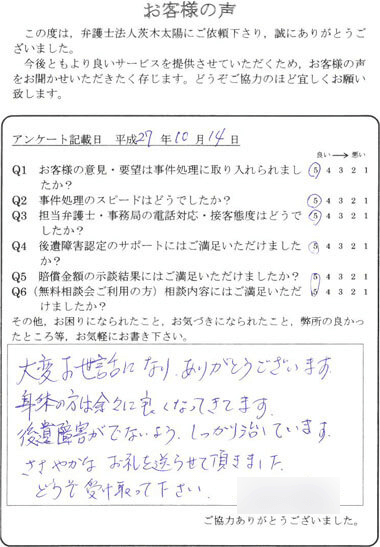 お客様の声
この度は，弁護士法人茨木太陽にご依頼下さり，誠にありがとうご
ざいました。
今後ともより良いサービスを提供させていただくため，お客様の声
をお聞かせいただきたく存じます。どうぞご協力のほど宜しくお願い
致します。
アンケート記載日 平成27年10月14日
良い → 悪い
Q1 お客様の意見・要望は事件処理に取り入れられまし 5 4 3 2 1
たか？
Q2 事件処理のスピードはどうでしたか？ 5 4 3 2 1
Q3 担当弁護士・事務局の電話対応・接客態度はどうで 5 4 3 2 1
したか？
Q4 後遺障害認定のサポートにはご満足いただけました 5 4 3 2 1
か？
Q5 賠償金額の示談結果にはご満足いただけましたか？ 5 4 3 2 1
Q6（無料相談会ご利用の方）相談内容にはご満足いただ 5 4 3 2 1
けましたか？
その他，お困りになられたこと，お気づきになられたこと，弊所の良かっ
たところ等，お気軽にお書き下さい。
大変お世話になり、ありがとうございます。
身体の方は余々に良くなってきてます。
後遺障害がでないよう、しっかり治しています。
ささやかな お礼を送らせて頂きました。
どうぞ受け取って下さい。
ご協力ありがとうございました。